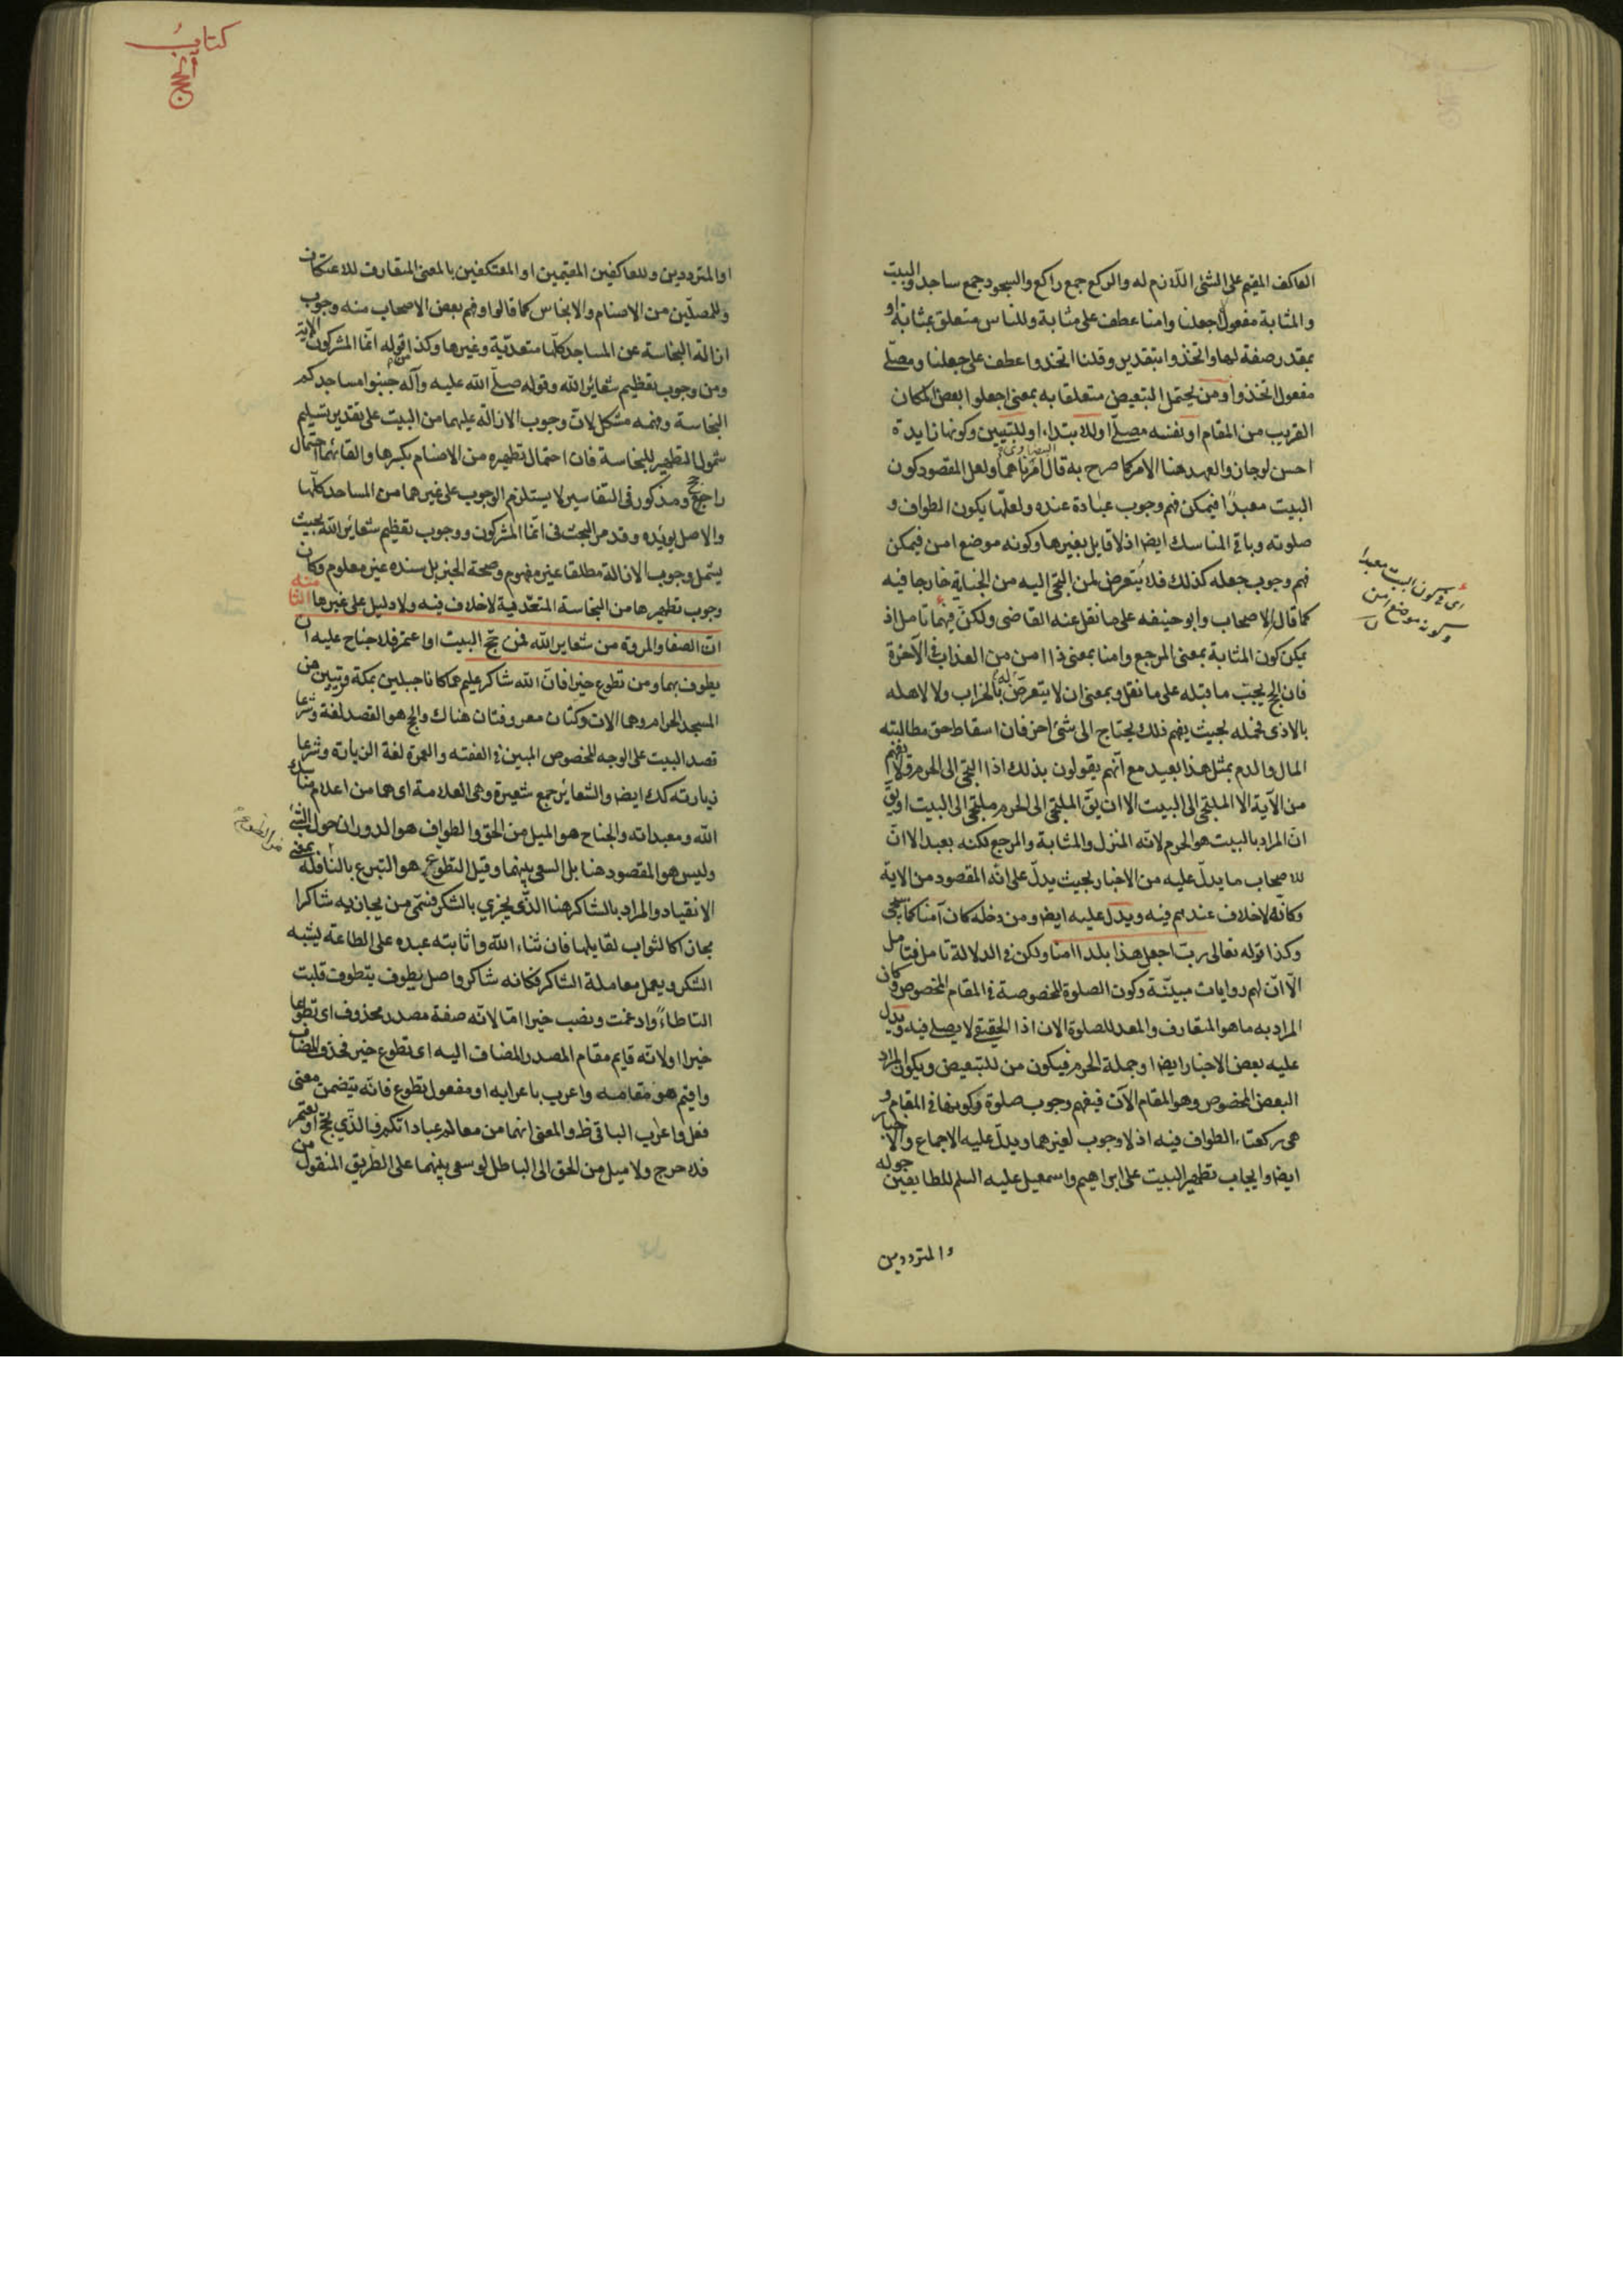 العاكف المقيم على الشئ اللازم له والركع جمع راكع والسجود جمع ساجد والبيت
والمثابة مفعولا جعلنا وامنا عطف على مثابة وللناس متعلق بمثابة او
بمقدر صفة لها واتخذوا بتقدير وقلنا اتخذوا عطف على جعلنا ومصلّى
مفعول اتخذوا ومن يحتمل التبعيض متعلقا به بمعنى اجعلوا بعض المكان
القريب من المقام او نفسه مصلّى او للابتداء او للتبيين وكونها زايدة
احسن لو جاز والعهد هنا الامر كما صرح به قال امرناهما ولعل المقصود كون
البيضاوى
البيت معبدًا فيمكن فهم وجوب عبادة عنده ولعلّها يكون الطواف و
صلوته وباقى المناسك ايضا اذ لا قايل بغيرها وكونه موضع امن فيمكن
فهم وجوب جعله كذلك فلا يتعرض لمن التجى اليه من الجناية خارجا فيه
كما قال الاصحاب وابو حنيفه على ما نقل عنه القاضى ولكنّ فيهما تامل اذ
يمكن كون المثابة بمعنى المرجع وامنا بمعنى ذا امن من العذاب فى الآخرة
فان الحج يجبّ ما قبله على ما نقل وبمعنى ان لا يتعرض له بالخراب ولا لاهله
بالاذى فحمله بحيث يفهم ذلك يحتاج الى شئ اخر فان اسقاط حق مطالبته
المال والدم بمثل هذا بعيد مع انّهم يقولون بذلك اذا التجى الى الحرم ولا يفهم
من الآية الا الملتجى الى البيت الا ان يقّ الملتجى الى الحرم ملتجى الى البيت او يقّ
انّ المراد بالبيت هو الحرم لانّه المنزل والمثابة والمرجع لكنه بعيد الا انّ
للاصحاب ما يدلّ عليه من الاخبار بحيث يدلّ على انّه المقصود من الاية
وكانّه لا خلاف عندهم فيه ويدل عليه ايضا ومن دخله كان آمنا كما سيجئ
وكذا قوله تعالى ربّ اجعل هذا بلدا امنا ولكن فى الدلالة تامل فتامل
الّا انّ لهم روايات مبيّنة وكون الصلوة المخصوصة فى المقام المخصوص وكان
المراد به ما هو المتعارف والمعد للصلوة الان اذا الحقيقى لا يصلى فيه ويدل
عليه بعض الاخبار ايضا وجملة الحرم فيكون من للتبعيض ويكون المراد
البعض المخصوص وهو المقام الآن فيفهم وجوب صلوة وكونها فى المقام و
هى ركعتاء الطواف فيه اذ لا وجوب لغيرهما ويدلّ عليه الاجماع والاخبار
ايضا وايجاب تطهير البيت على ابراهيم واسمعيل عليه السلم للطايفين حوله
والمترددين
اى فى كون البيت معبدا
وكونه موضع امن
كتاب
او المترددين وللعاكفين المقيمين او المعتكفين بالمعنى المتعارف للاعتكاف
وللمصلّين من الاصنام والانجاس كما قالوا وفهم بعض الاصحاب منه وجوب
ازالة النجاسة عن المساجد كلّها متعدّية وغيرها وكذا من قوله انّما المشركون الاية
ومن وجوب تعظيم شعاير الله وقوله صلّى الله عليه وآله جنبوا مساجدكم
النجاسة وفهمه مشكل لان وجوب الازالة عليهما من البيت على تقدير تسليم
شمول التطهير للنجاسة فان احتمال تطهيره من الاصنام بكسرها والقائها احتمال
راجح ومذكور فى التفاسير لا يستلزم الوجوب على غيرهما من المساجد كلّها
والاصل يويّده وقد مر البحث فى انّما المشركون ووجوب تعظيم شعاير الله بحيث
يشمل وجوب الازالة مطلقا غير مفهوم وصحة الخبر بل سنده غير معلوم وكان
وجوب تطهيرها من النجاسة المتعدّية لا خلاف فيه ولا دليل على غيرها
انّ الصفا والمروة من شعاير الله فمن حجّ البيت او اعتمر فلا جناح عليه ان
يطوف بهما ومن تطوع خيرا فانّ الله شاكر عليم هما كانا جبلين بمكة قريبين من
المسجد الحرام وهما الان دكتان معروفتان هناك والحج هو القصد لغة وشرعا
قصد البيت على الوجه المخصوص المبين فى الفقه والعمرة لغة الزيارة وشرعا
زيارته كك ايضا والشعاير جمع شعيرة وهى العلامة اى هما من اعلام مناسك
الله ومعبداته والجناح هو الميل من الحق والطواف هو الدوران حول الشئ
وليس هو المقصود هنا بل السعى بينهما وقيل التطوع هو التبرع بالنافلة بمعنى
الانقياد والمراد بالشاكر هنا الذّى يجزي بالشكر فسمّى من يجازيه شاكرا
مجازا كالثواب لقايلها فان ثناء الله واثابته عبده على الطاعة يشبه
الشكر ويعمل معاملة الشاكر فكانه شاكر واصل يطوف يتطوف قلبت
التا طاءً وادغمت ونصب خيرا امّا لانّه صفة مصدر محذوف اى تطوعا
خيرا او لانّه قايم مقام المصدر المضاف اليه اى تطوع خير فحذف المضاف
واقيم هو مقامه واعرب باعرابه او مفعول تطوع فانّه يتضمن معنى
فعل واعراب الباقى ظ والمعنى انهما من معالم عباداتكم فالذّي يحجّ او يعتمر
فلا حرج ولا ميل من الحق الى الباطل لو سعى بينهما على الطريق المنقول من